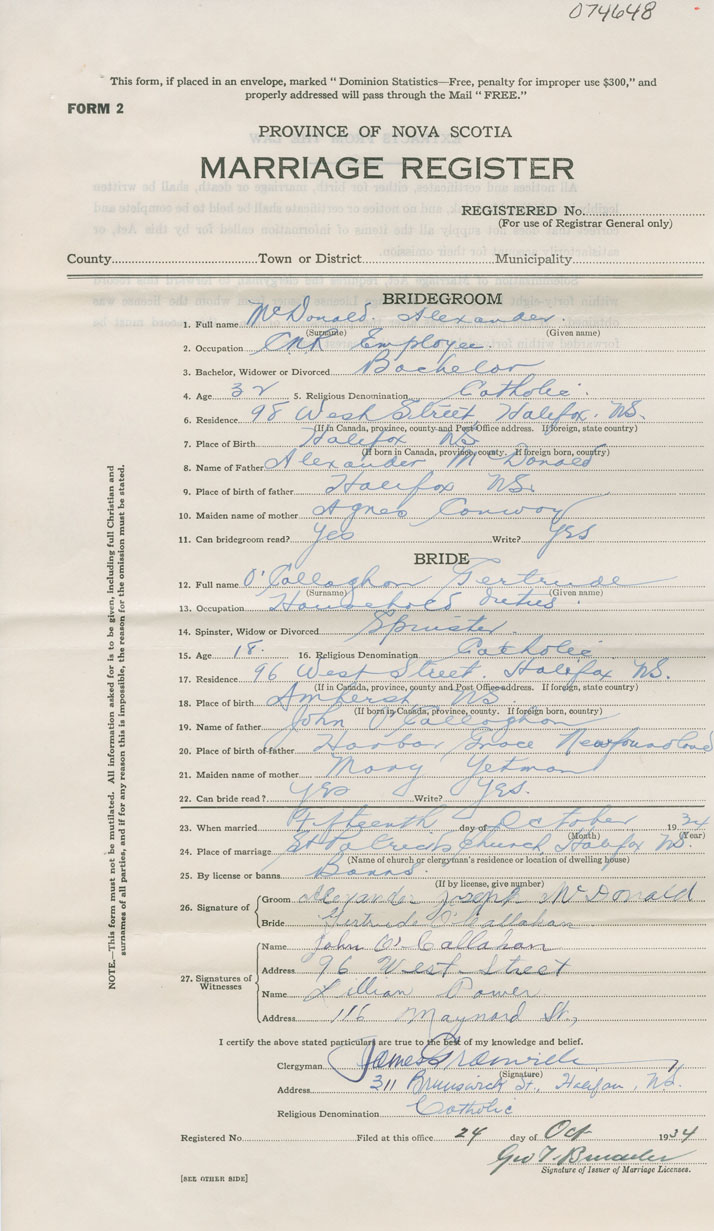 074648
This form, if placed in an envelope, marked " Dominion Statistics—Free, penalty for improper use $300," and
properly addressed will pass through the Mail " FREE."
FORM 2
PROVINCE OF NOVA SCOTIA
MARRIAGE REGISTER
REGISTERED No.
(For use of Registrar General only)
County Town or District Municipality
BRIDEGROOM
1. Full name McDonald. Alexander.
(Surname) (Given name)
2. Occupation CNR Employee.
3. Bachelor, Widower or Divorced Bachelor
4. Age 32 5. Religious Denomination Catholic.
6. Residence 98 West Street Halifax. NS.
(If in Canada, province, county and Post Office address. If foreign, state country)
7. Place of Birth Halifax NS.
(If born in Canada, province, county. If foreign born, country)
8. Name of Father Alexander McDonald
9. Place of birth of father Halifax NS.
10. Maiden name of mother Agnes Conway
11. Can bridegroom read? Yes Write? Yes
BRIDE
12. Full name O'Callaghan Gertrude
(Surname) (Given name)
13. Occupation Household Duties.
14. Spinster, Widow or Divorced Spinster.
15. Age 18. 16. Religious Denomination Catholic
17. Residence 96 West Street. Halifax NS.
(If in Canada, province, county and Post Office address. If foreign, state country)
18. Place of birth Amherst NS.
(If born in Canada, province, county. If foreign born, country)
19. Name of father John O'Callaghan
20. Place of birth of father Harbor Grace Newfoundland
21. Maiden name of mother Mary Yetman
22. Can bride read? Yes Write? Yes.
23. When married Fifteenth day of October 1934
(Month) (Year)
24. Place of marriage St Patrick's Church Halifax NS.
(Name of church or clergyman's residence or location of dwelling house)
25. By license or banns Banns.
(If by license, give number)
26. Signature of Groom Alexander Joseph McDonald
Bride Gertrude O'Callahan
27. Signatures of Witnesses Name John O'Callahan
Address 96 West Street
Name Lillian Power
Address 116 Maynard St,
I certify the above stated particulars are true to the best of my knowledge and belief.
Clergyman James Granville
(Signature)
Address 311 Brunswick St., Halifax, NS.
Religious Denomination Catholic
Registered No. Filed at this office 24 day of Oct 1934
Geo T.
Signature of Issuer of Marriage Licenses.
[SEE OTHER SIDE]
NOTE.—This form must not be mutilated. All information asked for is to be given, including full Christian and
surnames of all parties, and if for any reason this is impossible, the reason for the omission must be stated.